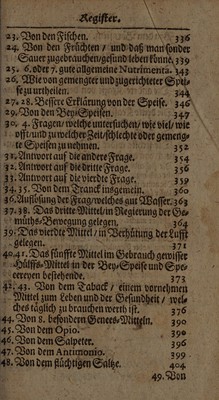 Register.
23. Von den Fischen. 336
24. Von den Früchten / und daß man sonder
Sauer zugebrauchen / gesund leben könne. 339
25. 6. oder 7. gute allgemeine Nutrimenta. 343
26. Wie von gemengter und zugerichteter Spei-
se zu urtheilen. 344
27. 28. Bessere Erklärung von der Speise. 346
29. Von den Bey-Speisen. 347
30. 4. Fragen / welche untersuchen / wie viel / wie
offt / und zu welcher Zeit / schlechte oder gemeng-
te Speisen zu nehmen. 352
31. Antwort auf die andere Frage. 354
32. Antwort auf die dritte Frage. 356
33. Antwort auf die vierdte Frage. 359
34. 35. Von dem Tranck insgemein. 360
36. Auflösung der Frag / welches gut Wasser. 363
37. 38. Das dritte Mittel / in Regierung der Ge-
müths-Bewegung gelegen. 364
39. Das vierdte Mittel / in Verhütung der Lufft
gelegen. 371
40. 41. Das fünffte Mittel im Gebrauch gewisser
Hülffs-Mittel in der Bey-Speise und Spe-
cereyen bestehende. 373
42. 43. Von dem Taback / einem vornehmen
Mittel zum Leben und der Gesundheit / wel-
ches täglich zu brauchen werth ist. 376
44. Von 8. besondern Genees-Mitteln. 390
45. Von dem Opio. 390
46. Von dem Salpeter. 396
47. Von dem Antimonio. 399
48. Von dem flüchtigen Saltze. 404
49. Von